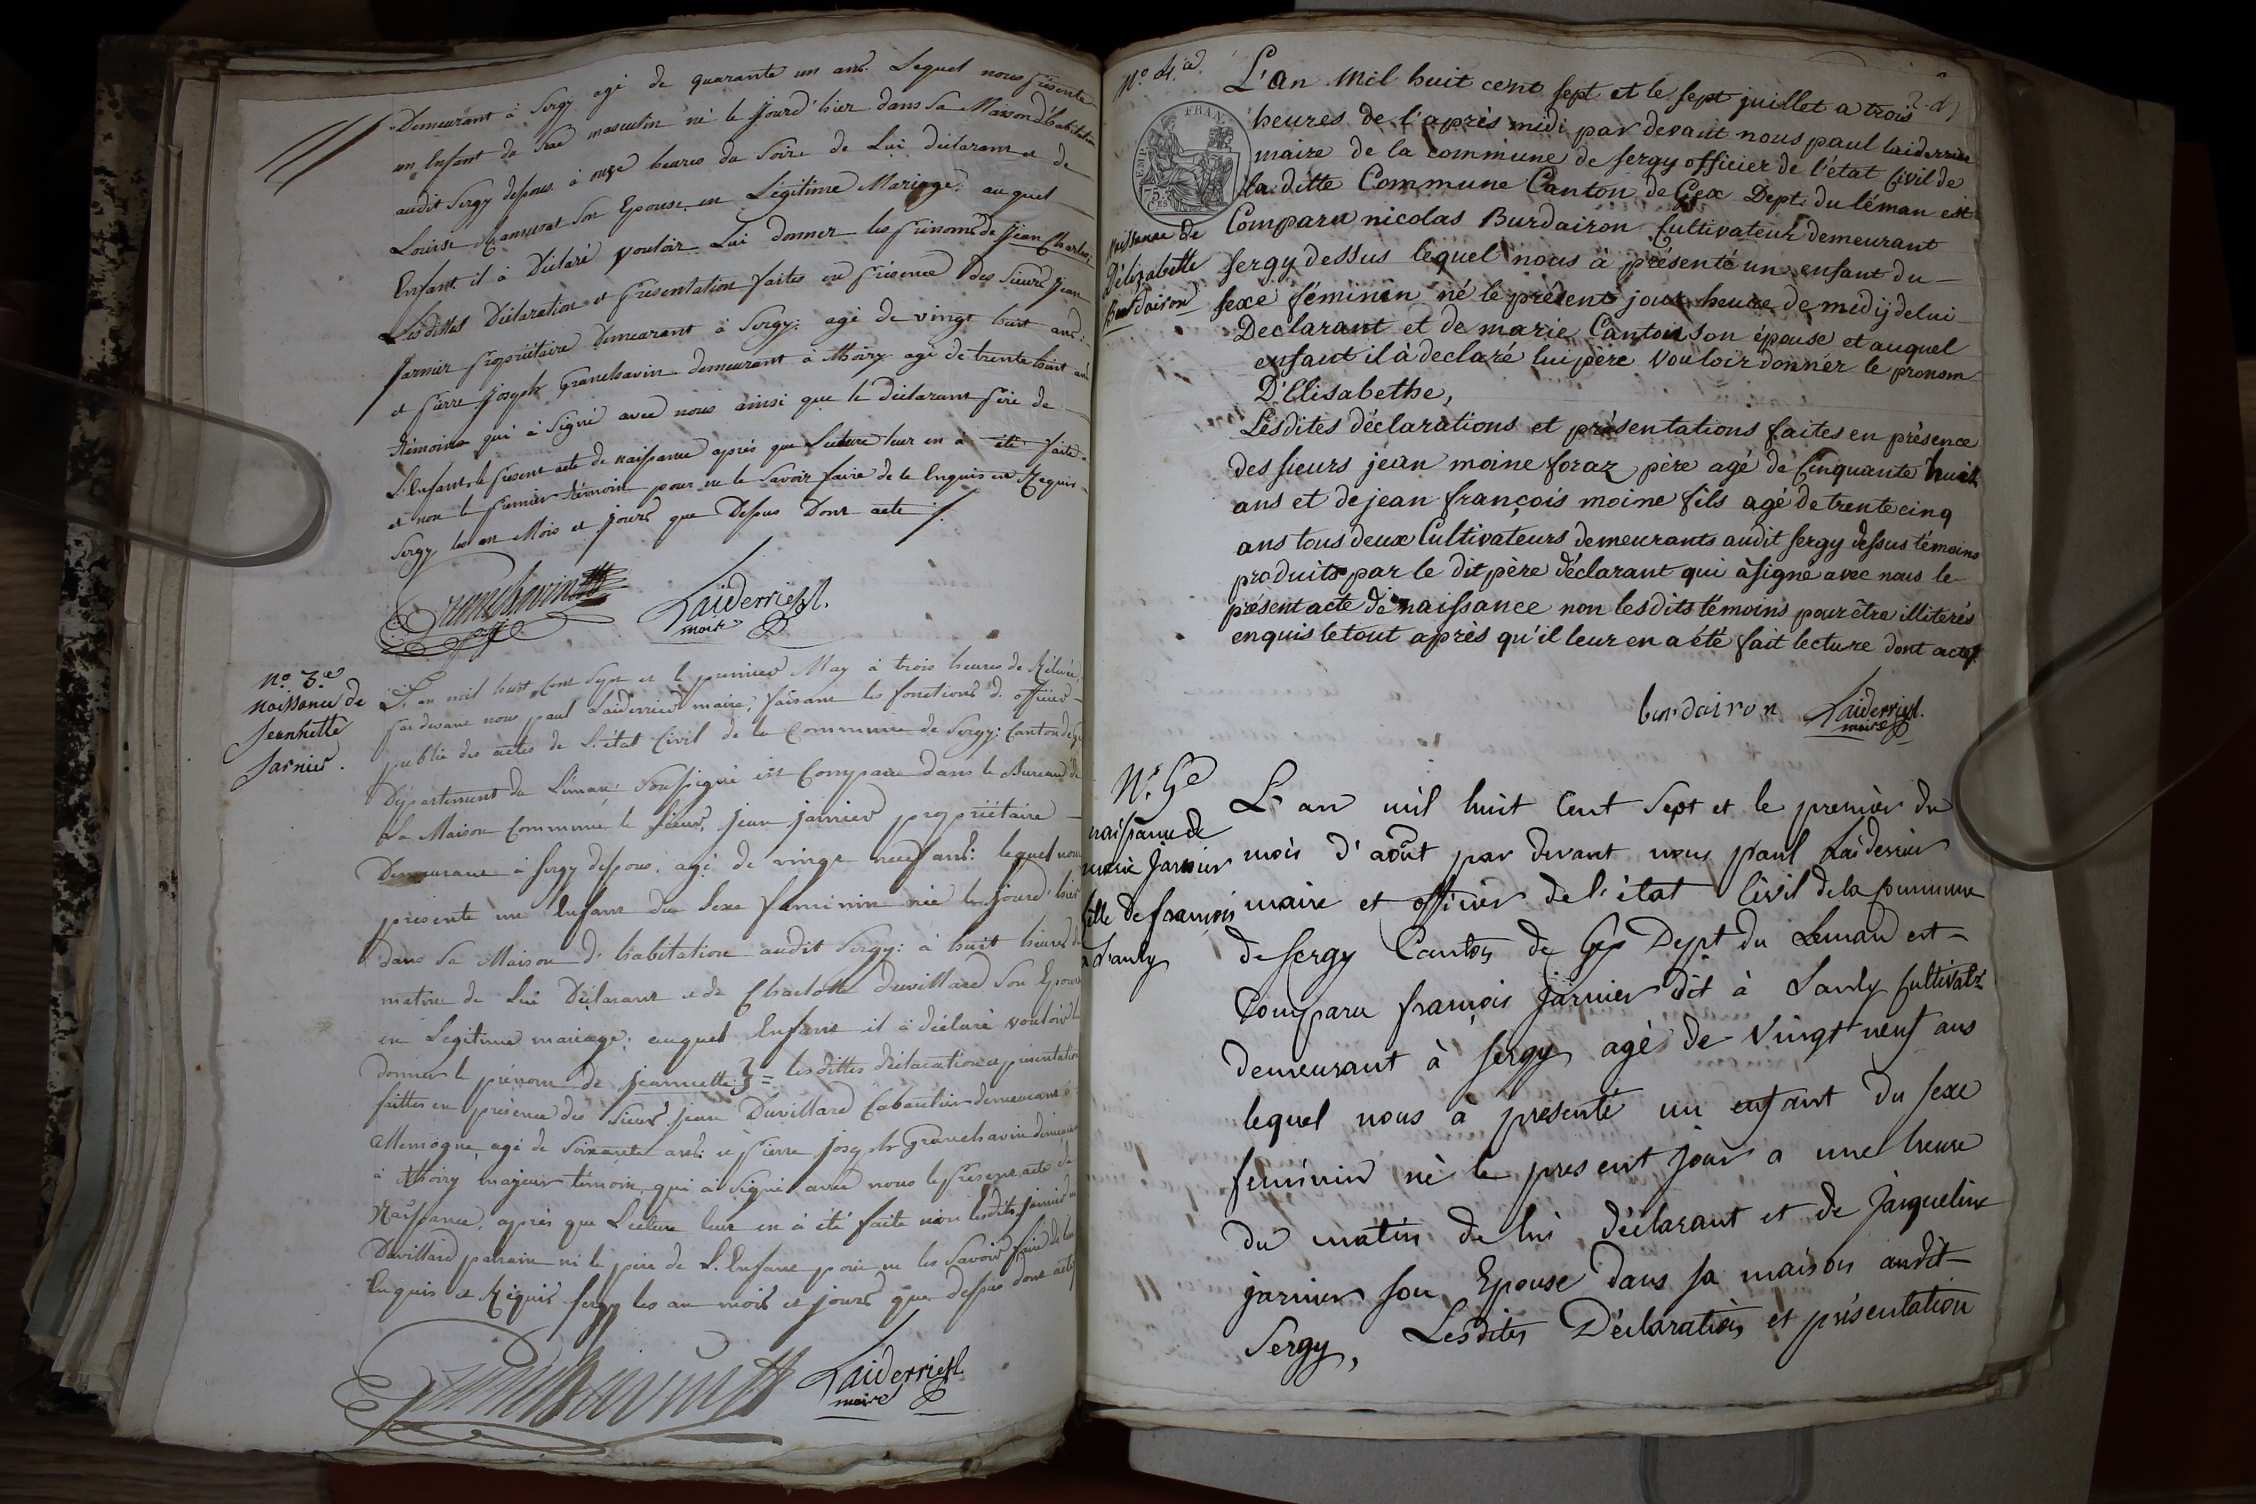 Demeurant à Sergy agé de quarante un ans. Lequel nous présente
un Enfant du Sexe masculin né le jourd'hier dans Sa Maison d'habitation
audit Sergy dessous à onze heures du Soire de Lui déclarant et de
Louise son Epouse en Légitime Mariage; auquel
Enfant il à Déclaré vouloir Lui donner les prénoms de Jean Charles;
Lesdittes Déclaration et présentation faites en présence des Sieurs Jean
Jarnier propriétaire Demeurant à Sergy; agé de vingt huit ans;
et pierre Joseph Granchavin demeurant à Thoiry agé de trente huit ans
témoins qui à Signé avec nous ainsi que le déclarant père de
L'Enfant le présent acte de naissance après que Lecture leur en à été faite
et non le premier témoin pour ne le Savoir faire de ce Enquis et Requis
Sergy les an Mois et jours que Dessus Dont acte
Granchavin
Laiderrier
maire
N.º 3.e
naissance de
Jeannette
Jarnier.
L'an mil huit Cent Sept et le premier May à trois heures de Rélevée,
par devant nous paul Laiderrier maire, faisant les fonctions d'officier
public des actes de L'état Civil de la Commune de Sergy; Canton de Gex
Département du Léman: Soussigné est Comparu dans le Bureau de
La Maison Commune le sieur Jean Jarnier propriétaire
Demeurant à Sergy dessous, agé de vingt neuf ans: lequel nous
présente un Enfant du Sexe faminin née le jourd'hier
dans Sa Maison d'habitation audit Sergy: à huit heures du
matin de Lui Déclarant et de Charlotte Duvillard Son Epouse
en Légitime mariage; auquel Enfant il à déclaré vouloir lui
donner le prénom de jeannette = lesdittes déclaration et présentation
faittes en présence des Sieurs Jean Duvillard Cabaretier demeurant à
Allemogne agé de Soixante ans: et pierre Joseph Granchavin demeurant
à Thoiry majeur témoin, qui à Signé avec nous le présent acte de
Naissance, après que Lecture leur en à été faite non lesdits Jarnier
Duvillard parrain ni le père de L'Enfant pour ne les Savoir faire de
Enquis et Réquis Sergy les an mois et jours que dessus dont acte
Laiderrier
maire
N.º 4.e
L'an Mil huit cent sept et le sept juillet a trois
heures de l'après midi par devant nous paul laiderrier
maire de la commune de sergy officier de l'état Civil de
la ditte Commune Canton de Gex Dept. du léman est
Comparu nicolas Burdairon Cultivateur demeurant
Naissance de
D'élizabethe
Burdairon
sergy dessus lequel nous à présenté un enfant du
sexe féminin né le présent jour heure de midij de lui
Declarant et de marie Canton son épouse et auquel
enfant il à declaré lui père vouloir donner le pronom
D'Elisabethe,
Lesdites déclarations et présentations faites en présence
des sieurs jean moine foraz père agé de Cinquante huit
ans et de jean françois moine fils agé de trente cinq
ans tous deux Cultivateurs demeurants audit sergy dessus témoins
produits par le dit père déclarant qui à signé avec nous le
présent acte de naissance non lesdits témoins pour être illiterés
enquis le tout après qu'il leur en a été fait lecture dont acte
burdairon
Laiderrier
maire
N.º 5e
naissance de
marie Jarnier
fille de françois
a Lanly
L'an mil huit Cent Sept et le premier du
mois d'août par devant nous paul Laiderrier
maire et officier de l'état Civil de la Commune
de Sergy Canton de Gex Dept du Leman est
Comparu françois Jarnier dit à Lanly Cultivatr
demeurant à Sergy agé de Vingt neuf ans
lequel nous à presenté un enfant du sexe
feminin né le present jour a une heure
du matin de lui déclarant et de Jacqueline
jarnier son Epouse dans sa maison audit
Sergy, Lesdites Déclaration et présentation